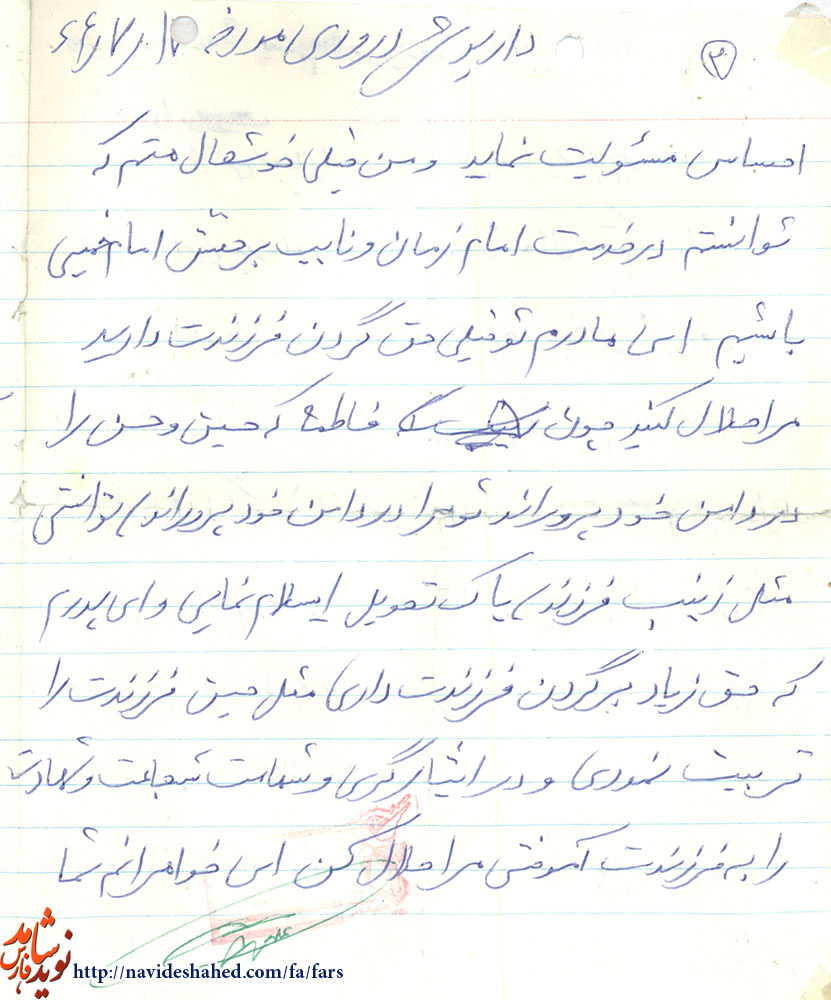 ۳
داریوش دروری مورخه ۶۶/۷/۱۷
احساس مسئولیت نماید ومن خیلی خوشحال هستم که
توانستم درخدمت امام زمان و نایب برحقش امام خمینی
باشیم ای مادرم تو خیلی حق گردن فرزندت دارید
مرا حلال کنید چون فاطمه که حسین وحسن را
در دامن خود پروراند تو مرا در دامن خود پروراندی توانستی
مثل زینب فرزندی پاک تحویل اسلام نمایی و ای پدرم
که حق زیاد بر گردن فرزندت داری مثل حسین فرزندت را
تربیت نمودی و درس ایثارگری وشهامت شجاعت وشهادت
را به فرزندت آموختی مرا حلال کن ای خواهرانم شما
نوید شاهد فارس
http://navideshahed.com/fa/fars